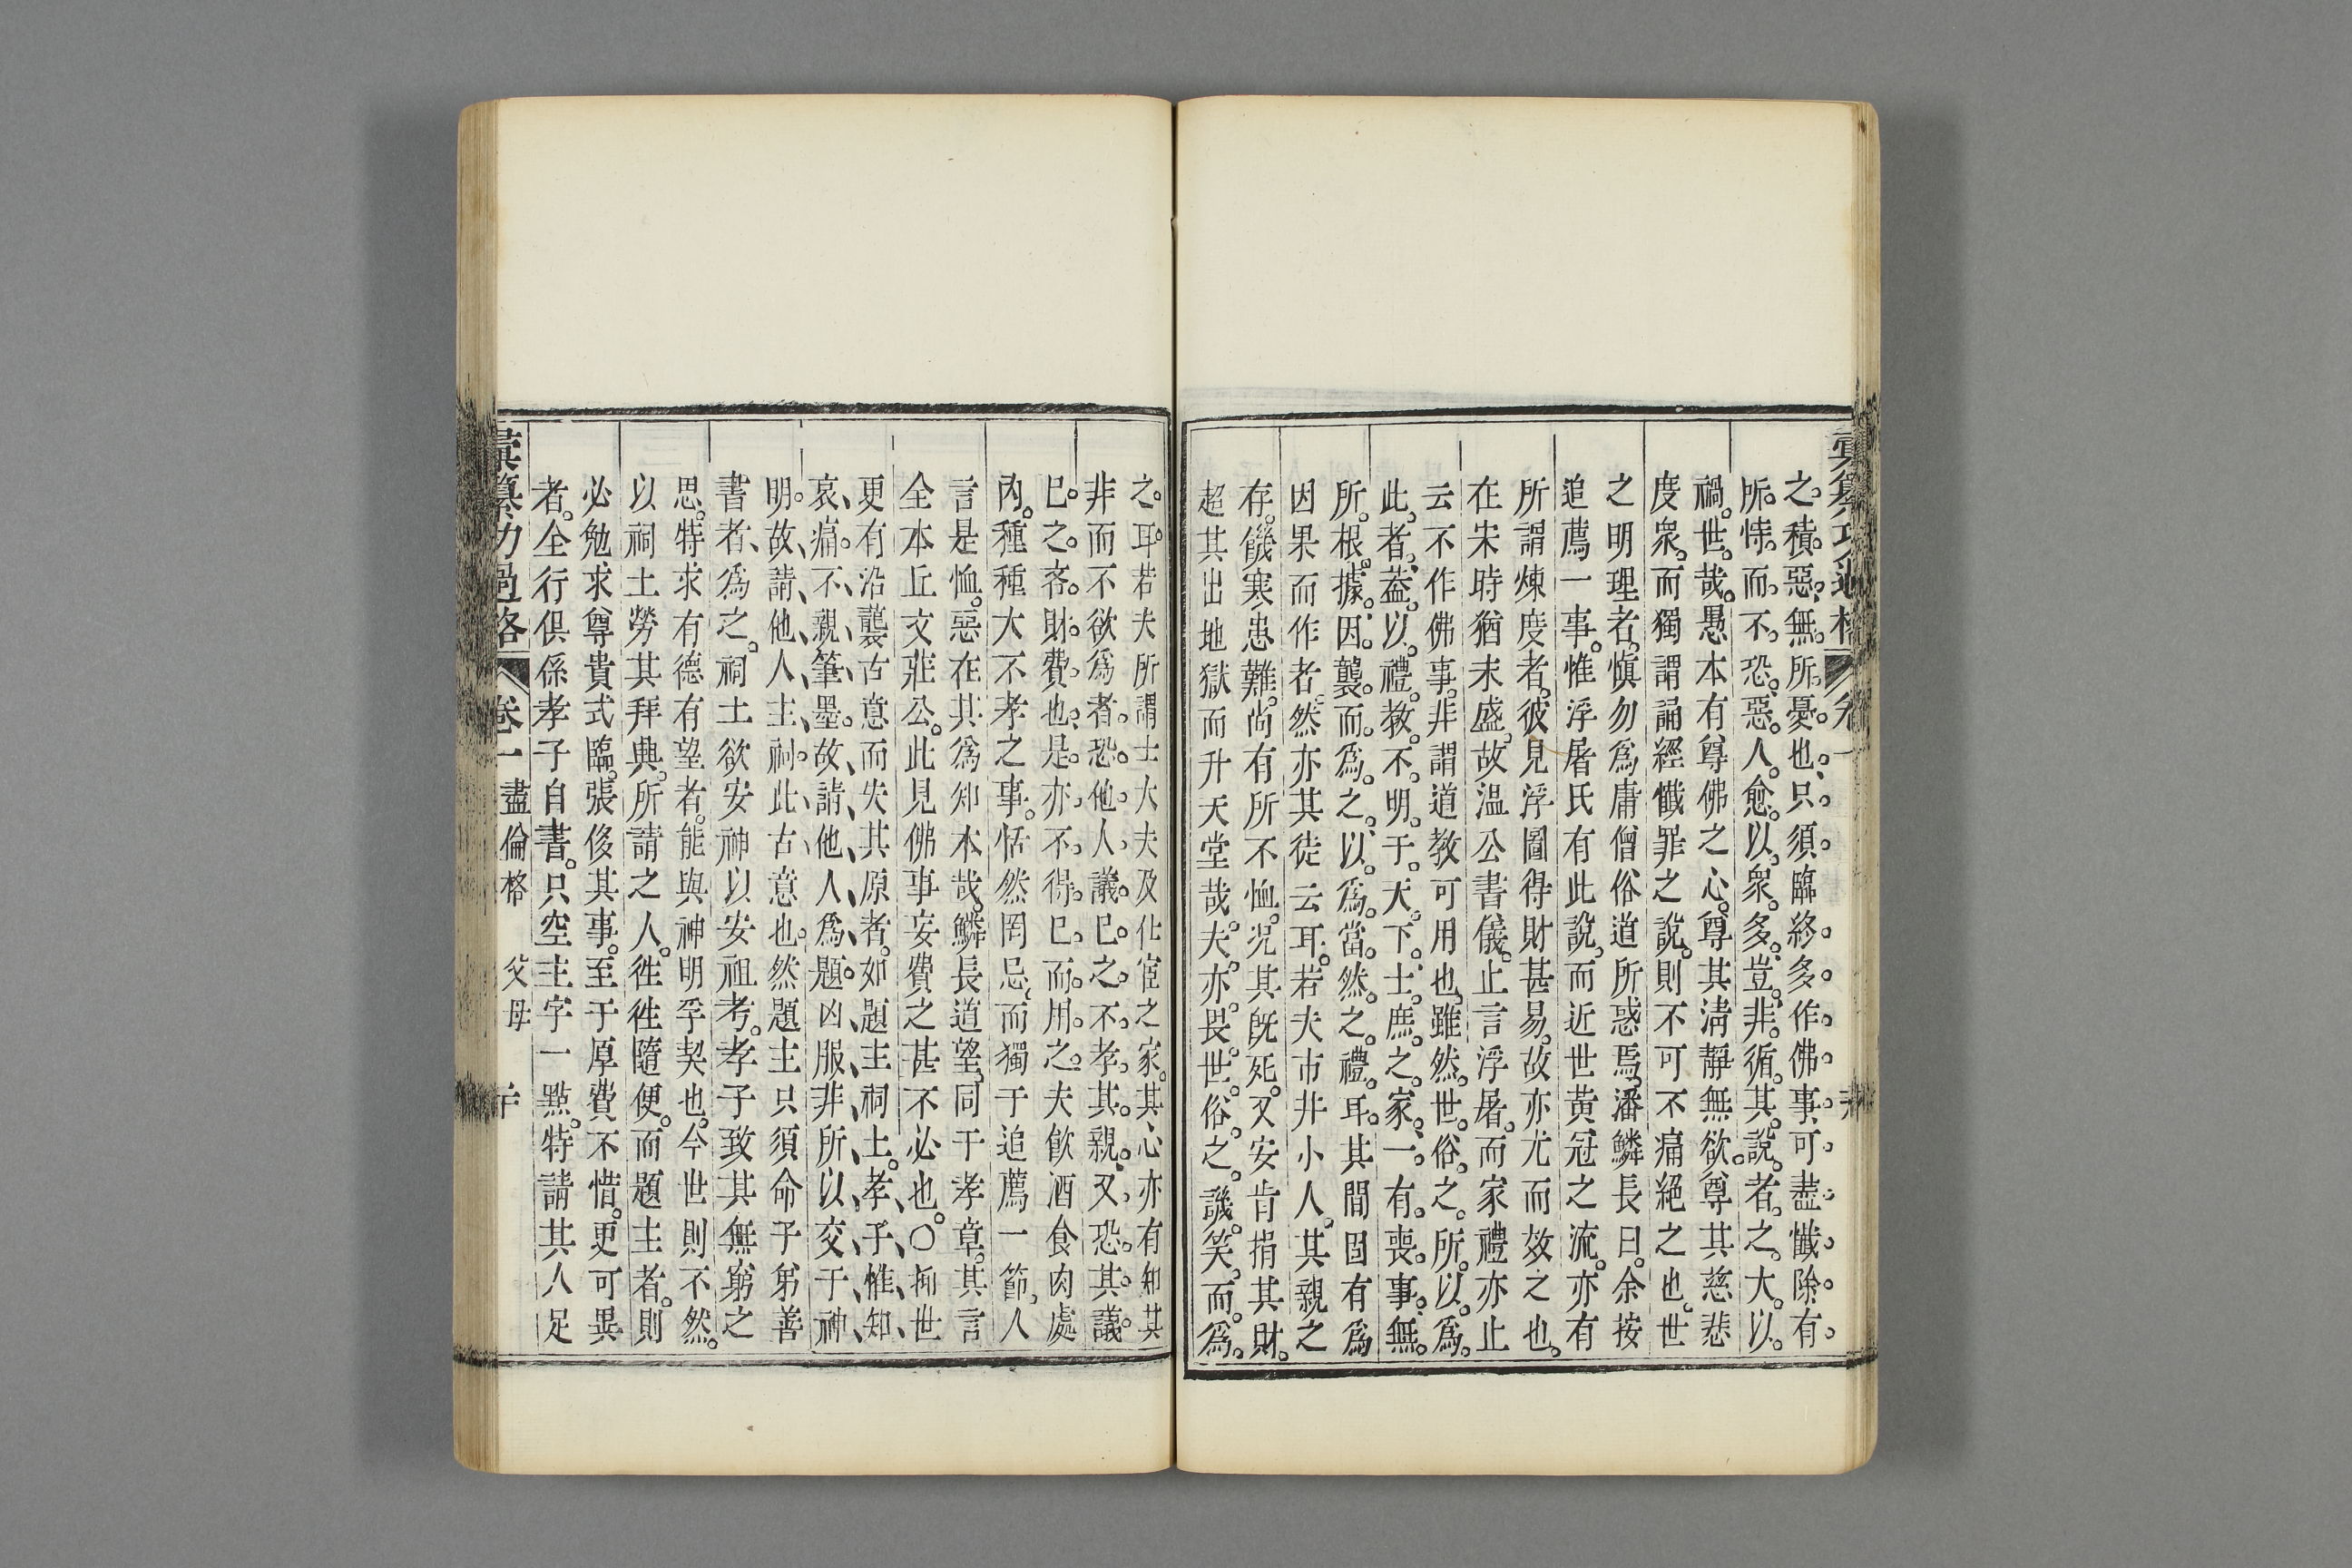 之積惡無所憂也只須臨終多作佛事可盡懺除有
所恃而不恐惡人愈以眾多豈非循其說者之大以
禍世哉愚本有尊佛之心尊其淸靜無欲尊其慈悲
度眾而獨謂誦經懺罪之說則不可不痛絕之也世
之明理者愼勿爲庸僧俗道所惑焉潘鱗長曰余按
追薦一事惟浮屠氏有此說而近世黃冠之流亦有
所謂煉度者彼見浮圖得財甚易故亦尤而效之也
在宋時猶未盛故溫公書儀止言浮屠而家禮亦止
云不作佛事非謂道教可用也雖然世俗之所以爲
此者葢以禮教不明于天下士庶之家一有喪事無
所根據因襲而爲之以爲當然之禮耳其間固有爲
因果而作者然亦其徒云耳若夫市井小人其親之
存饑寒患難尚有所不恤况其旣死又安肯捐其財
超其出地獄而升天堂哉夫亦畏世俗之譏笑而爲
之耳若夫所謂士大夫及仕宦之家其心亦有知其
非而不欲爲者恐他人議巳之不孝其親又恐其議
巳之吝財費也是亦不得巳而用之夫飮酒食肉處
內種種大不孝之事恬然罔忌而獨于追薦一節人
言是恤惡在其爲知本哉鱗長道望同于孝章其言
全本丘文莊公此見佛事妄費之甚不必也〇抑世
更有沿襲古意而失其原者如題主祠土孝子惟知
哀痛不親筆墨故請他人爲題凶服非所以交于神
明故請他人主祠此古意也然題主只須命子弟善
書者爲之祠土欲安神以安祖考孝子致其無窮之
思特求有德有望者能與神明孚契也今世則不然
以祠土勞其拜典所請之人徃徃隨便而題主者則
必勉求尊貴式臨張侈其事至于厚費不惜更可異
者全行俱係孝子自書只空主字一點特請其人足
彙纂功過格 卷一 盡倫格 父母